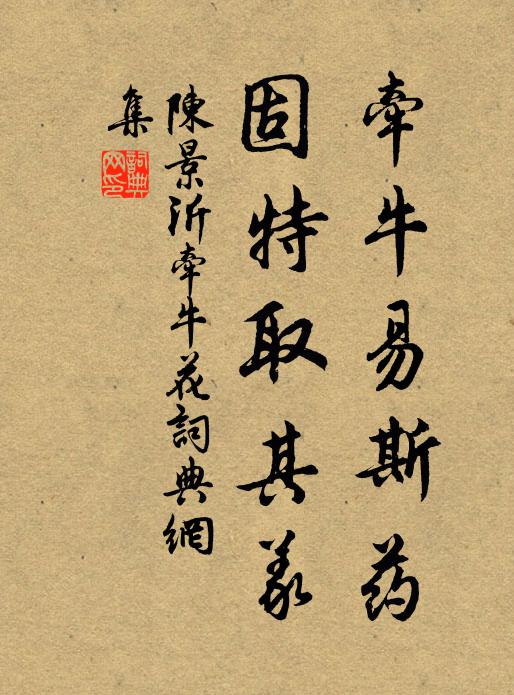 牽牛易斯药
固特取其義
陳景沂牽牛花詞典網
集
詞典網印